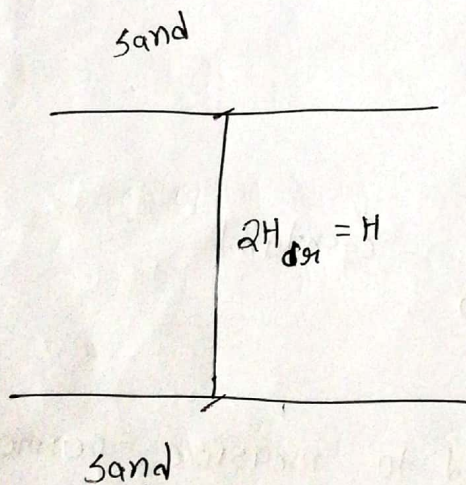 sand
2H dr = H
sand